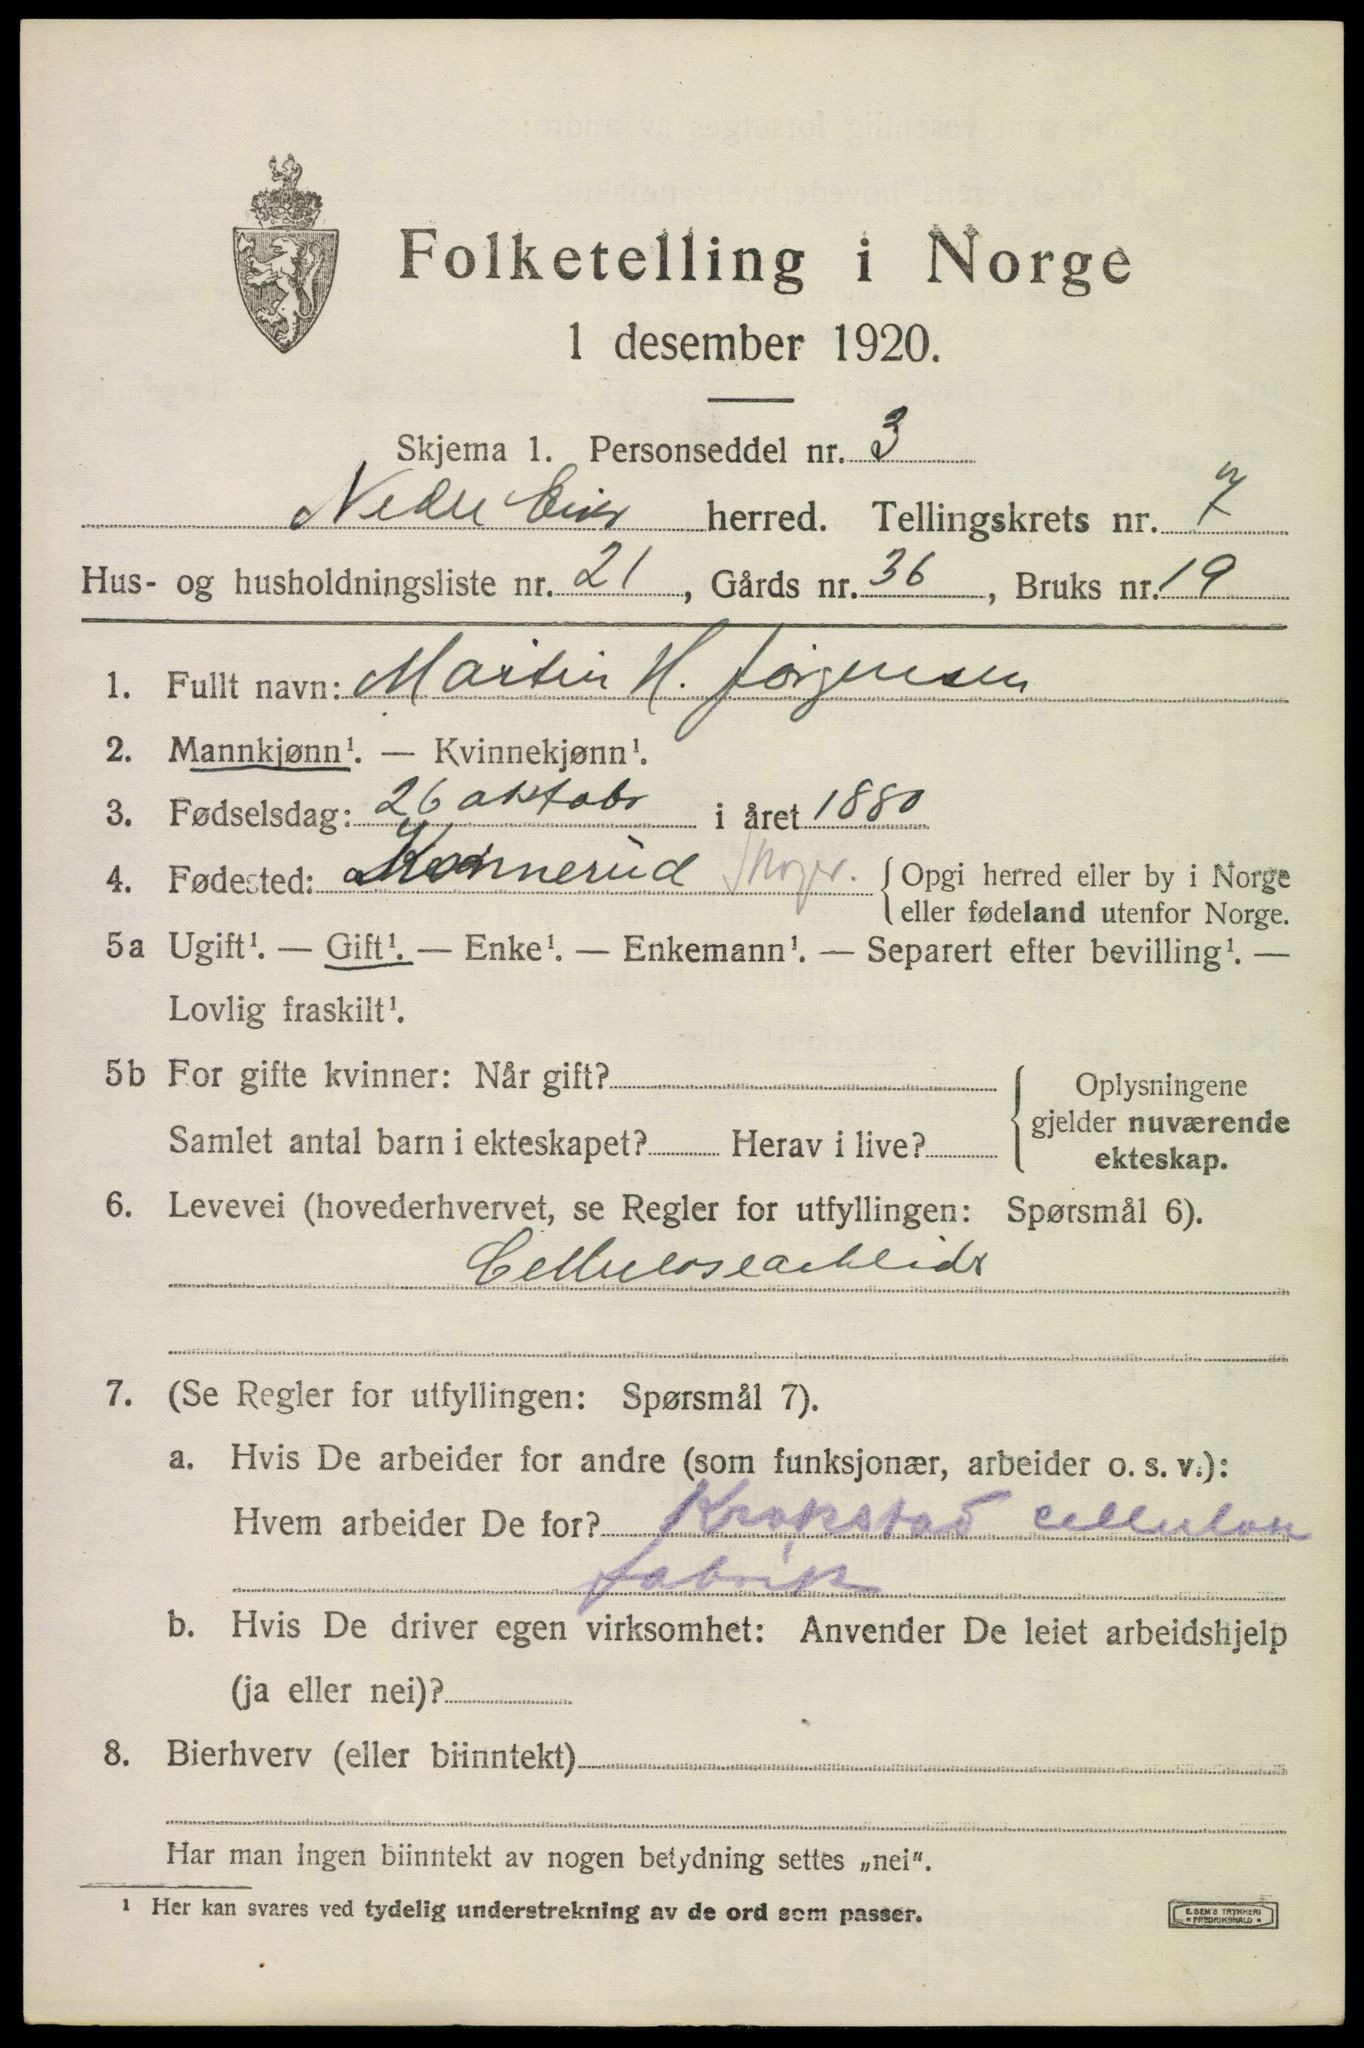 Folketelling i Norge
1 desember 1920.
Skjema 1. Personseddel nr. 3
Nedre Eiker herred. Tellingskrets nr. 7
Hus- og husholdningsliste nr. 21, Gårds nr. 36, Bruks nr. 19
1. Fullt navn: Martin H. Jørgensen
2. Mannkjønn¹. — Kvinnekjønn¹.
3. Fødselsdag: 26 oktobr i året 1880
4. Fødested: Konnerud Skoger. Opgi herred eller by i Norge
eller fødeland utenfor Norge.
5a Ugift¹. — Gift¹. — Enke¹. — Enkemann¹. — Separert efter bevilling¹. —
Lovlig fraskilt¹.
5b For gifte kvinner: Når gift?
Samlet antal barn i ekteskapet? Herav i live?
Oplysningene
gjelder nuværende
ekteskap.
6. Levevei (hovederhvervet, se Regler for utfyllingen: Spørsmål 6).
Cellulosearbeidr
7. (Se Regler for utfyllingen: Spørsmål 7).
a. Hvis De arbeider for andre (som funksjonær, arbeider o. s. v.):
Hvem arbeider De for? Krokstad cellulose
fabrik
b. Hvis De driver egen virksomhet: Anvender De leiet arbeidshjelp
(ja eller nei)?
8. Bierhverv (eller biinntekt)
Har man ingen biinntekt av nogen betydning settes „nei".
¹ Her kan svares ved tydelig understrekning av de ord som passer.
E. SEM'S TRYKKERI
FREDRIKSHALD